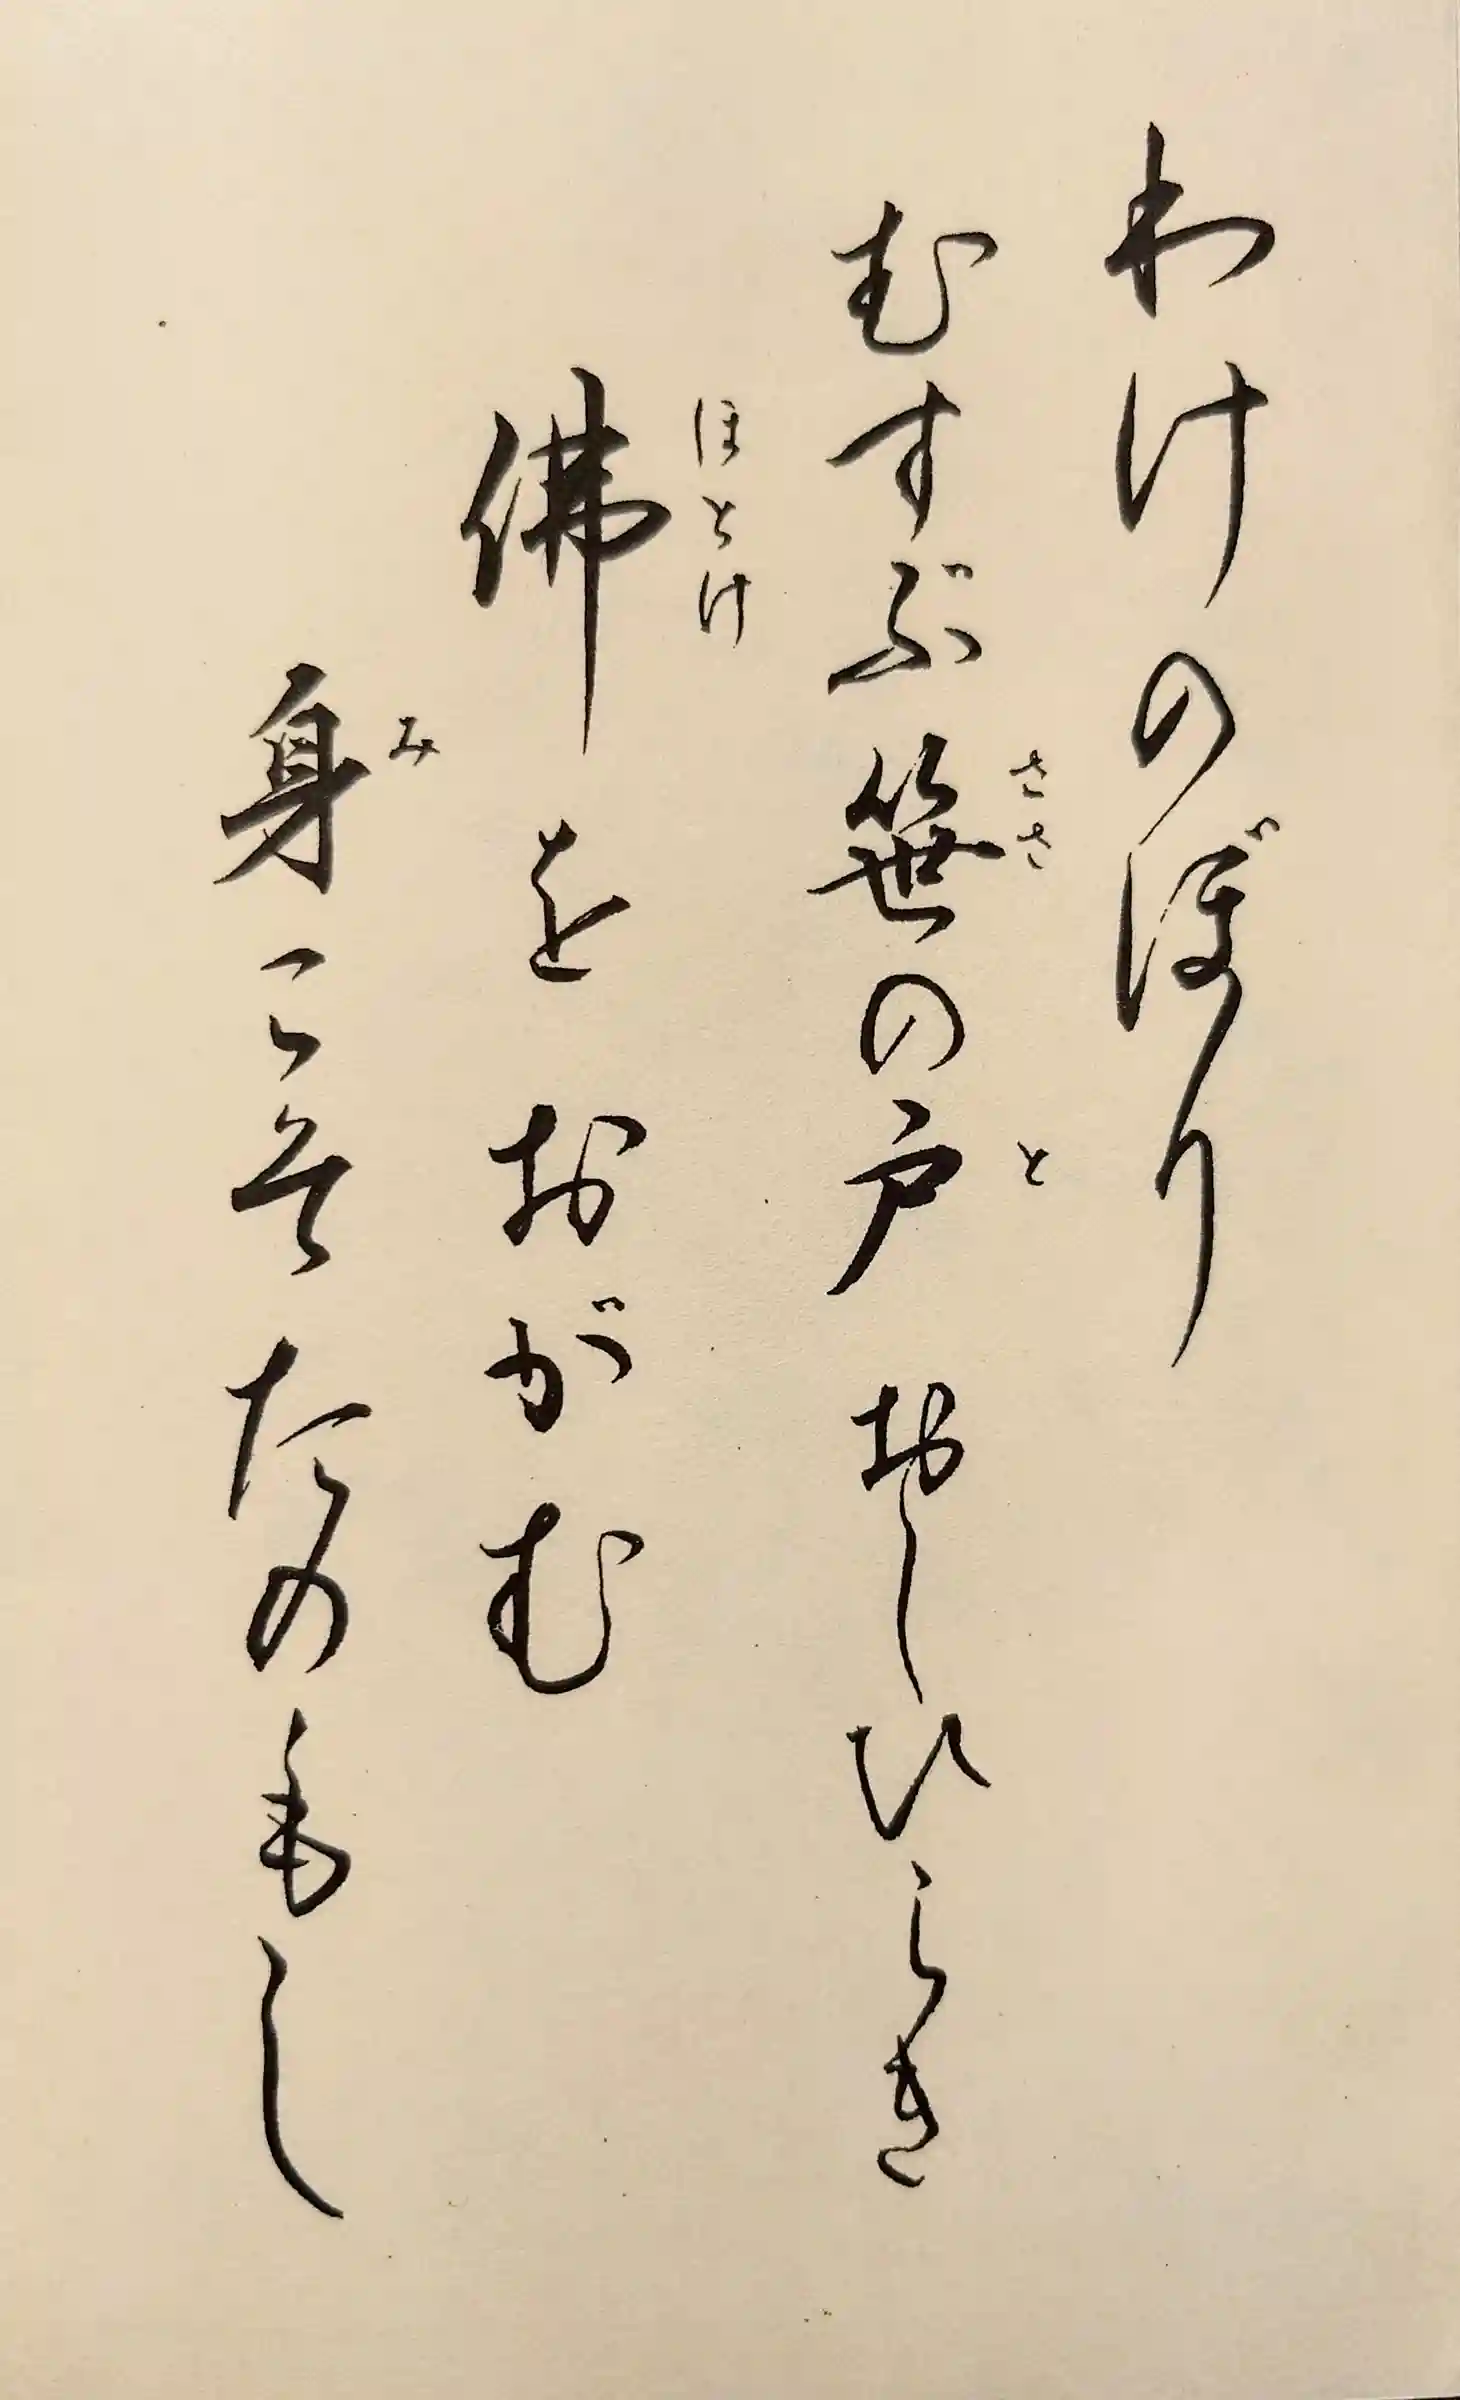 わけのぼり
むすぶ笹の戸おしひらき
ささ
と
佛をおがむ
ほとけ
身こそたのもし
み